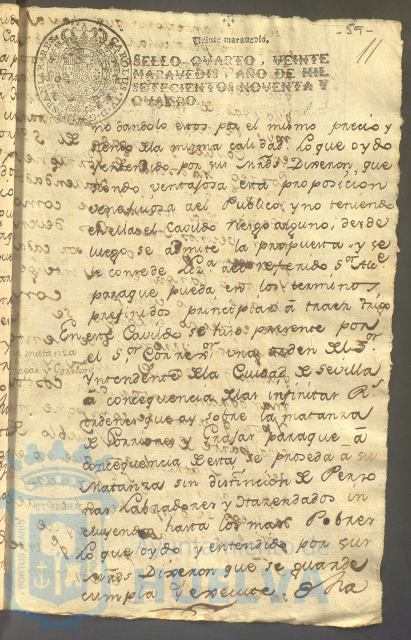 -59-
11
Veinte maravedis.
SELLO QUARTO, VEINTE
MARAVEDIS, AÑO DE MIL
SETECIENTOS NOVENTA Y
QUATRO.
no dandolo estos por el mismo precio y
siendo dela misma calidad: lo que oydo
y entendido por sus mrds Dixeron, que
siendo ventajosa esta proposicion
beneficiosa al Publico, y no teniendo
en ella el Cavildo riesgo alguno, desde
luego se admite la propuesta, y se
le concede al referido Sor
para que pueda en los terminos
prefinidos principiar á traer trigo
En este Cavildo se tubo presente por
el Sor Correxor una orden del Sor
Yntendente dela Ciudad de Sevilla
á consequencia delas infinitas Rs
ordenes que ay sobre la matanza
de Gorriones y para que á
consequencia de esta se proseda á su
matanza sin distincion de Perso
nas Labradores y Hazendados in
cluyendo hasta los mas Pobres
lo que oydo y entendido por sus
mrds Dixeron que se guarde
cumpla y execute. 
matanza
AYUNTAMIENTO DE
HUELVA